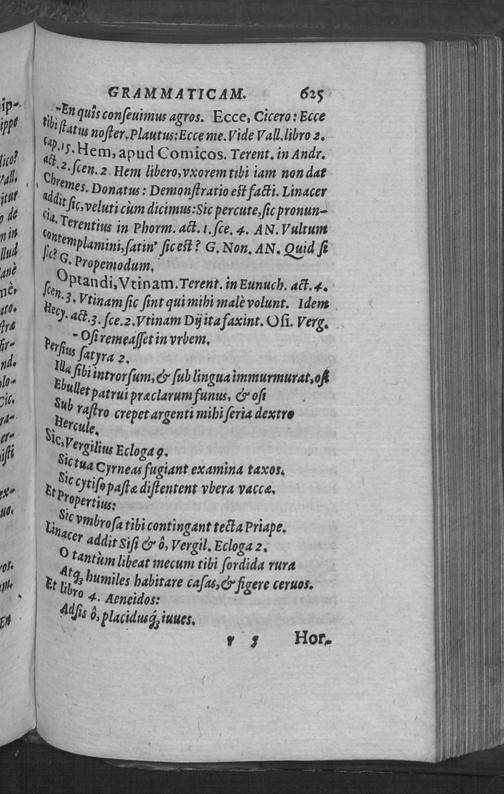 GRAMMATICAM. 625
-En quîs conſeuimus agros. Ecce, Cicero: Ecce
tibi ſtatus noſter. Plautus: Ecce me. Vide Vall. libro 2.
cap. 15. Hem, apud Comicos. Terent. in Andr.
act. 2. ſcen. 2. Hem libero, vxorem tibi iam non dat
Chremes. Donatus: Demonſtratio eſt facti. Linacer
addit ſic, veluti cùm dicimus: Sic percute, ſic pronun-
cia. Terentius in Phorm. act. 1. ſce. 4. AN. Vultum
contemplamini, ſatin' ſic eſt? G. Non. AN. Quid ſi
ſic? G. Propemodum.
Optandi, Vtinam. Terent. in Eunuch. act. 4.
ſcen. 3. Vtinam ſic ſint qui mihi malè volunt. Idem
Hecy. act. 3. ſce. 2. Vtinam Dij ita faxint. Oſi. Verg.
- Oſi remeaſſet in vrbem.
Perſius ſatyra 2.
Illa ſibi introrſum, & ſub lingua immurmurat, oſi
Ebullet patrui præclarum funus, & oſi
Sub raſtro crepet argenti mihi ſeria dextro
Hercule.
Sic, Vergilius Ecloga 9.
Sic tua Cyrneas fugiant examina taxos.
Sic cytiſo paſtæ diſtentent vbera vaccæ.
Et Propertius:
Sic vmbroſa tibi contingant tecta Priape.
Linacer addit Siſi & ô, Vergil. Ecloga 2.
O tantùm libeat mecum tibi ſordida rura
Atq; humiles habitare caſas, & figere ceruos.
Et libro 4. Aeneidos:
Adſis ô, placiduſq; iuues.
r 3 Hor-